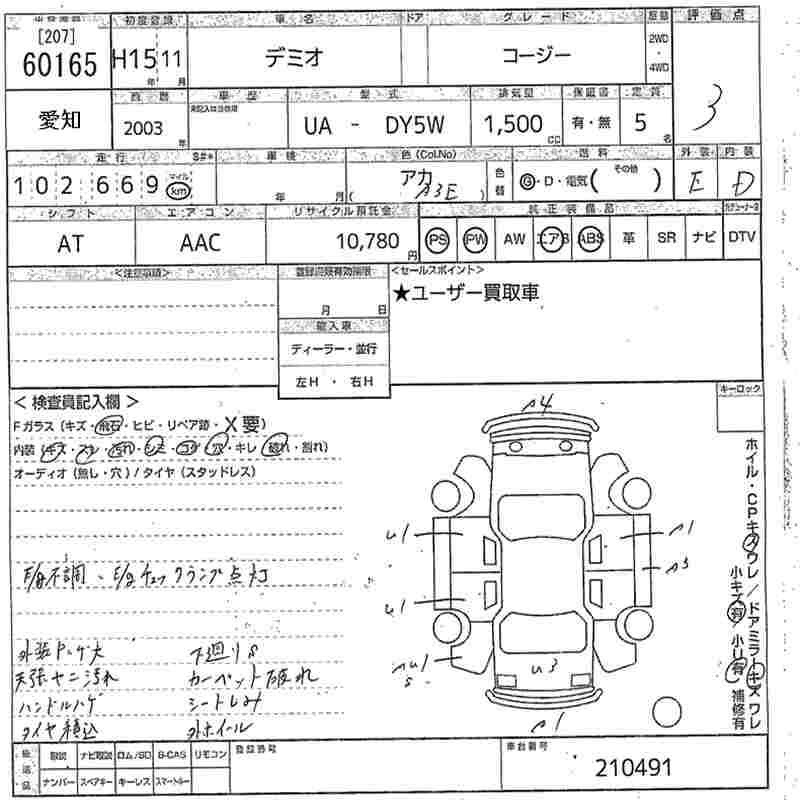 出品番号 初度登録 車名 ドア グレード 駆動 評価点
[207] 60165 H15 11 年 月 デミオ コージー 2WD・4WD 3
愛知 暦 車歴 型式 排気量 保証書 定員
2003 年 UA - DY5W 1,500 CC 有・無 5 名
走行 S#* 車検 色(Col.No) 色替 燃料 外装 内装
102,669 マイル km 年 月 アカ A3E G・D・電気( その他 ) E D
シフト エアコン リサイクル預託金 純正装備品
AT AAC 10,780 円 PS PW AW エアB ABS 革 SR ナビ DTV
<注意事項> 登録書類有効期限 <セールスポイント>
月 日 ★ユーザー買取車
輸入車
ディーラー・並行
左H ・ 右H
< 検査員記入欄 > キーロック
Fガラス (キズ・飛石・ヒビ・リペア跡・X要)
内装 (キズ・スレ・汚れ・シミ・コゲ・穴・キレ・破れ・割れ)
オーディオ (無し・穴) / タイヤ (スタッドレス)
E/g不調、E/gチェックランプ点灯
外装 大 下廻りS
天張ヤニ汚れ カーペット破れ
ハンドルハゲ シート
タイヤ積込 外ホイール
A4
U1 A1
A3
U1
U3
A1
ホイル・CPキズワレ/ドアミラーキズワレ
小キズ有/小U有 補修有
後送品 取説 ナビ取説 ロム/SD B-CAS リモコン 登録番号 車台番号
ナンバー スペアキー キーレス スマートキー 210491